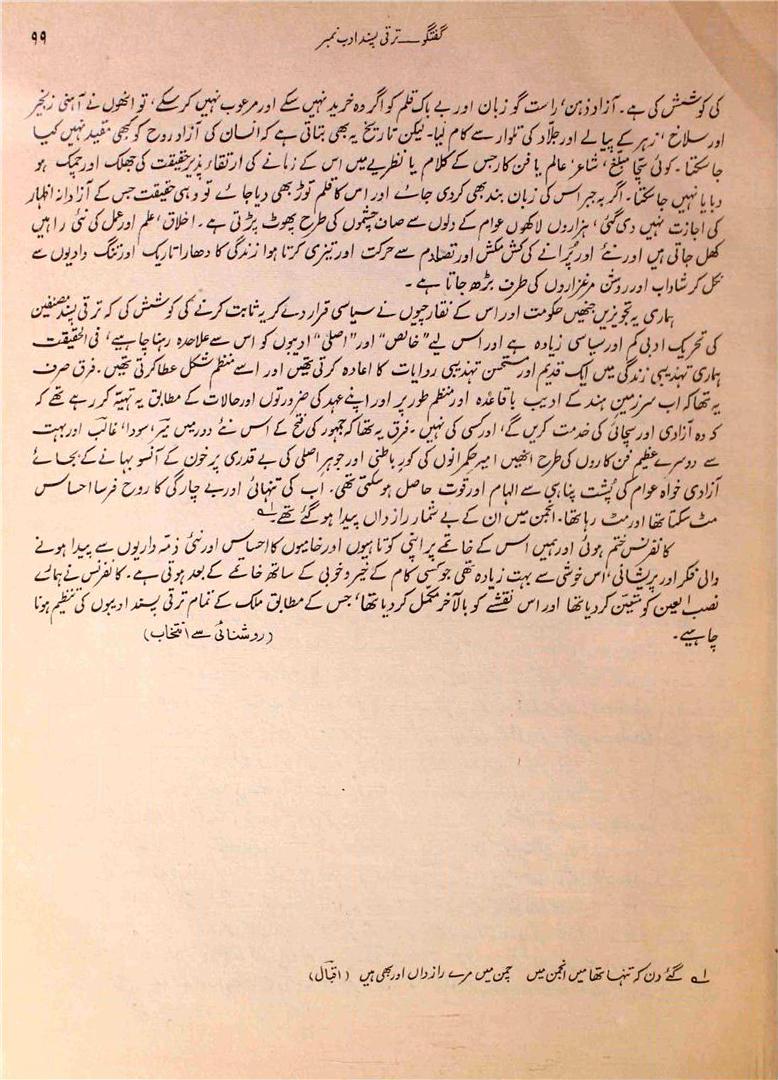 گفتگو ــــ ترقی پسند ادب نمبر
۹۹
کی کوشش کی ہے۔ آزاد ذہن، راست گو زبان اور بے باک قلم کو اگر وہ خرید نہیں سکے اور مرعوب نہیں کر سکے، تو انھوں نے آہنی زنجیر
اور سلاخ، زہر کے پیالے اور جلّاد کی تلوار سے کام لیا۔ لیکن تاریخ یہ بھی بتاتی ہے کہ انسان کی آزاد روح کو کبھی مقید نہیں کیا
جا سکتا۔ کوئی سچّا مبلّغ، شاعر، عالم یا فن کار جس کے کلام یا نظریے میں اس کے زمانے کی ارتقاء پذیر حقیقت کی جھلک اور چمک ہو
دبایا نہیں جا سکتا۔ اگر بہ جبر اس کی زبان بند بھی کر دی جائے اور اس کا قلم توڑ بھی دیا جائے تو وہی حقیقت جس کے آزادانہ اظہار
کی اجازت نہیں دی گئی، ہزاروں لاکھوں عوام کے دلوں سے صاف چشموں کی طرح پھوٹ پڑتی ہے۔ اخلاق، علم اور عمل کی نئی راہیں
کھل جاتی ہیں اور نئے اور پُرانے کی کش مکش اور تصادم سے حرکت اور تیزی کرتا ہوا زندگی کا دھارا تاریک اور تنگ وادیوں سے
نکل کر شاداب اور روشن مرغزاروں کی طرف بڑھ جاتا ہے۔
ہماری یہ تجویزیں جنھیں حکومت اور اس کے نقارچیوں نے سیاسی قرار دے کر یہ ثابت کرنے کی کوشش کی کہ ترقی پسند مصنفین
کی تحریک ادبی کم اور سیاسی زیادہ ہے اور اس لیے "خالص" اور "اصلی" ادیبوں کو اس سے علاحدہ رہنا چاہیے، فی الحقیقت
ہماری تہذیبی زندگی میں ایک قدیم اور مستحسن تہذیبی روایات کا اعادہ کرتی تھیں اور اسے منظم شکل عطا کرتی تھیں۔ فرق صرف
یہ تھا کہ اب سرزمین ہند کے ادیب باقاعدہ اور منظم طور پر اور اپنے عہد کی ضرورتوں اور حالات کے مطابق یہ تہیّہ کر رہے تھے کہ
کہ وہ آزادی اور سچائی کی خدمت کریں گے، اور کسی کی نہیں۔ فرق یہ تھا کہ جمہور کی فتح کے اس نئے دور میں میر، سودا، غالب اور بہت
سے دوسرے عظیم فن کاروں کی طرح انھیں امیر حکمرانوں کی کور باطنی اور جوہر اصلی کی بے قدری پر خون کے آنسو بہانے کے بجائے
آزادی خواہ عوام کی پُشت پناہی سے الہام اور قوت حاصل ہو سکتی تھی۔ اب کی تنہائی اور بے چارگی کا روح فرسا احساس
مٹ سکتا تھا اور مٹ رہا تھا۔ انجمن میں ان کے بے شمار رازداں پیدا ہو گئے تھے۔ ؎۱
کانفرنس ختم ہوئی اور ہمیں اس کے خاتمے پر اپنی کوتاہیوں اور خامیوں کا احساس اور نئی ذمہ داریوں سے پیدا ہونے
والی فکر اور پریشانی، اس خوشی سے بہت زیادہ تھی جو کسی کام کے خیر و خوبی کے ساتھ خاتمے کے بعد ہوتی ہے۔ کانفرنس نے ہمارے
نصب العین کو متعیّن کر دیا تھا اور اس نقشے کو بالآخر مکمل کر دیا تھا، جس کے مطابق ملک کے تمام ترقی پسند ادیبوں کی تنظیم ہونا
چاہیے۔ (روشنائی سے انتخاب)
؎۱ گئے دن کہ تنہا تھا میں انجمن میں چمن میں مرے رازداں اور بھی ہیں (اقبال)